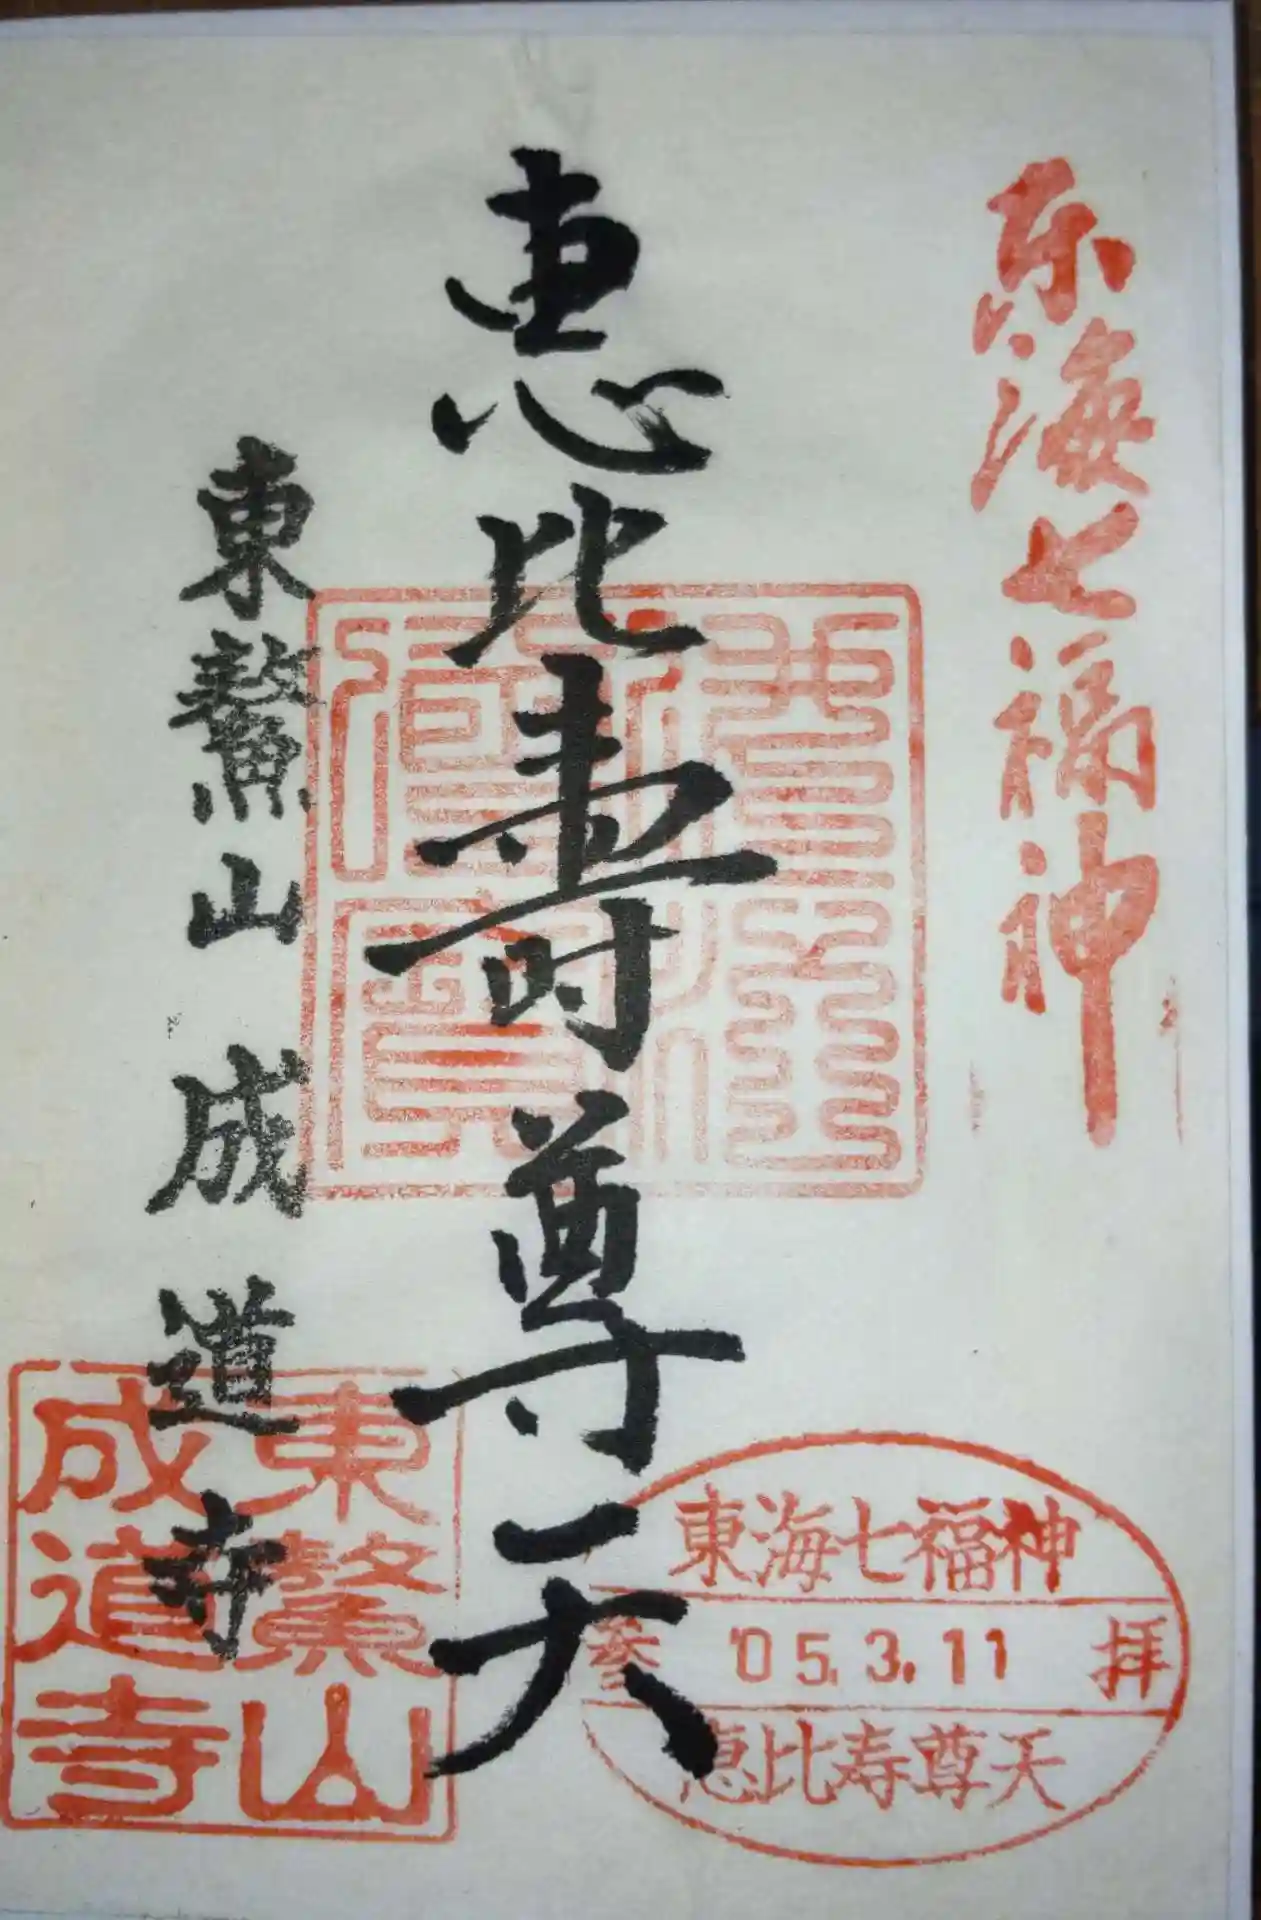 東海七福神
恵比壽尊天
東鰲山成道寺
佛法僧寶
東鰲山
成道寺
東海七福神
参 '05.3.11 拝
恵比寿尊天